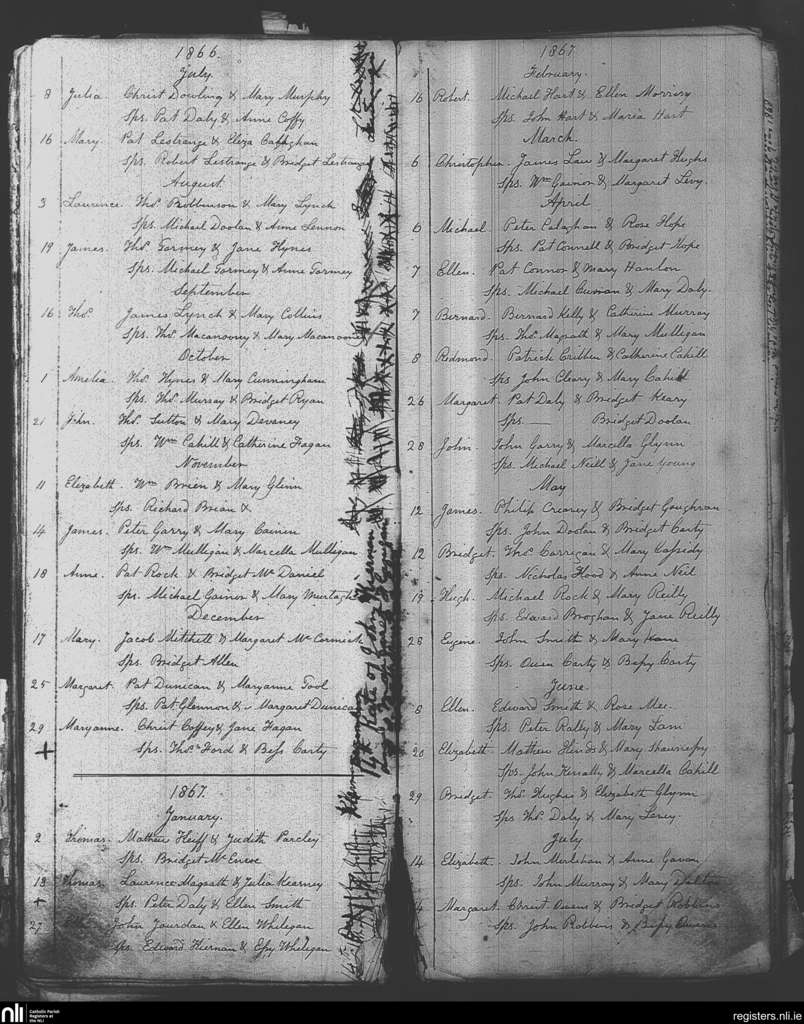 1866.
July.
8 Julia. Christ Dowling & Mary Murphy
Sps. Pat Daly & Anne Coffy
16 Mary. Pat Lestrange & Eliza Callaghan
Sps. Robert Lestrange & Bridget Lestrange
August.
3 Laurence. Thos. Robbinson & Mary Lynch
Sps. Michael Doolan & Anne Lennon
19 James. Thos. Tormey & Jane Hynes
Sps. Michael Tormey & Anne Tormey
September
16 Thos. James Lynch & Mary Collins
Sps. Thos. Macanooney & Mary Macanooney
October
1 Amelia. Thos. Hynes & Mary Cunningham
Sps. Thos. Murray & Bridget Ryan
21 John. Thos. Sutton & Mary Devaney
Sps. Wm Cahill & Catherine Fagan
November
11 Elizabeth. Wm Brien & Mary Glinn
Sps. Richard Brian &
14 James. Peter Garry & Mary
Sps. Wm Mulligan & Marcella Mulligan
18 Anne. Pat Rock & Bridget Mc Daniel
Sps. Michael Gainor & Mary Murtagh
December
17 Mary. Jacob Mitchell & Margaret Mc Cormick
Sps. Bridget Allen
25 Margaret. Pat Dunican & Maryanne Tool
Sps. Pat Glennon & Margaret Dunican
29 Maryanne. Christ Coffey & Jane Fagan
Sps. Thos. Ford & Bess Carty
1867.
January.
2 Thomas. Mathew & Judith
Sps. Bridget Mc
13 Thomas. Laurence Magrath & Julia Kearney
Sps. Peter Daly & Ellen Smith
27 John Jourdan & Ellen Whelegan
Sps. Edward Hiernan & Essy Whelegan
1867
February.
16 Robert. Michael Hart & Ellen Morrisy
Sps. John Hart & Maria Hart
March.
6 Christopher. James Law & Margaret Hughs
Sps. Wm Gainor & Margaret Levy.
April
6 Michael. Peter Calaghan & Rose Hope
Sps. Pat Connell & Bridget Hope
7 Ellen. Pat Connor & Mary Hanlon
Sps. Michael & Mary Daly.
7 Bernard. Bernard Kelly & Catherine Murray
Sps. Thos. Magrath & Mary Mulligan
8 Redmond. Patrick & Catherine Cahill
Sps John Cleary & Mary Cahill
26 Margaret. Pat Daly & Bridget Keary
Sps. — Bridget Doolan
28 John. John Garry & Marcella Glynn
Sps. Michael Neill & Jane Young
May
12 James. Philip Creaney & Bridget Gaughran
Sps. John Doolan & Bridget Carty
12 Bridget. Thos. Corrigan & Mary Cassidy
Sps. Nicholas Hood & Anne Neil
19 Hugh. Michael Rock & Mary Reilly
Sps. Edward Broghan & Jane Reilly
26 Eugene. John Smith & Mary
Sps. Owen Carty & Bessy Carty
June.
8 Ellen. Edward Smith & Rose Mee.
Sps. Peter Rally & Mary Lam
20 Elizabeth Mathew Hinds & Mary
Sps. John & Marcella Cahill
29 Bridget. Thos. Hughes & Elizabeth Glynn
Sps Thos. Daly & Mary Levey.
July
14 Elizabeth. John & Anne Gavan
Sps. John Murray & Mary Dalton
Margaret. Christ Owens & Bridget Robbins
Sps. John Robbins & Bessy Owens
nli
Catholic Parish
Registers at
the NLI
registers.nli.ie